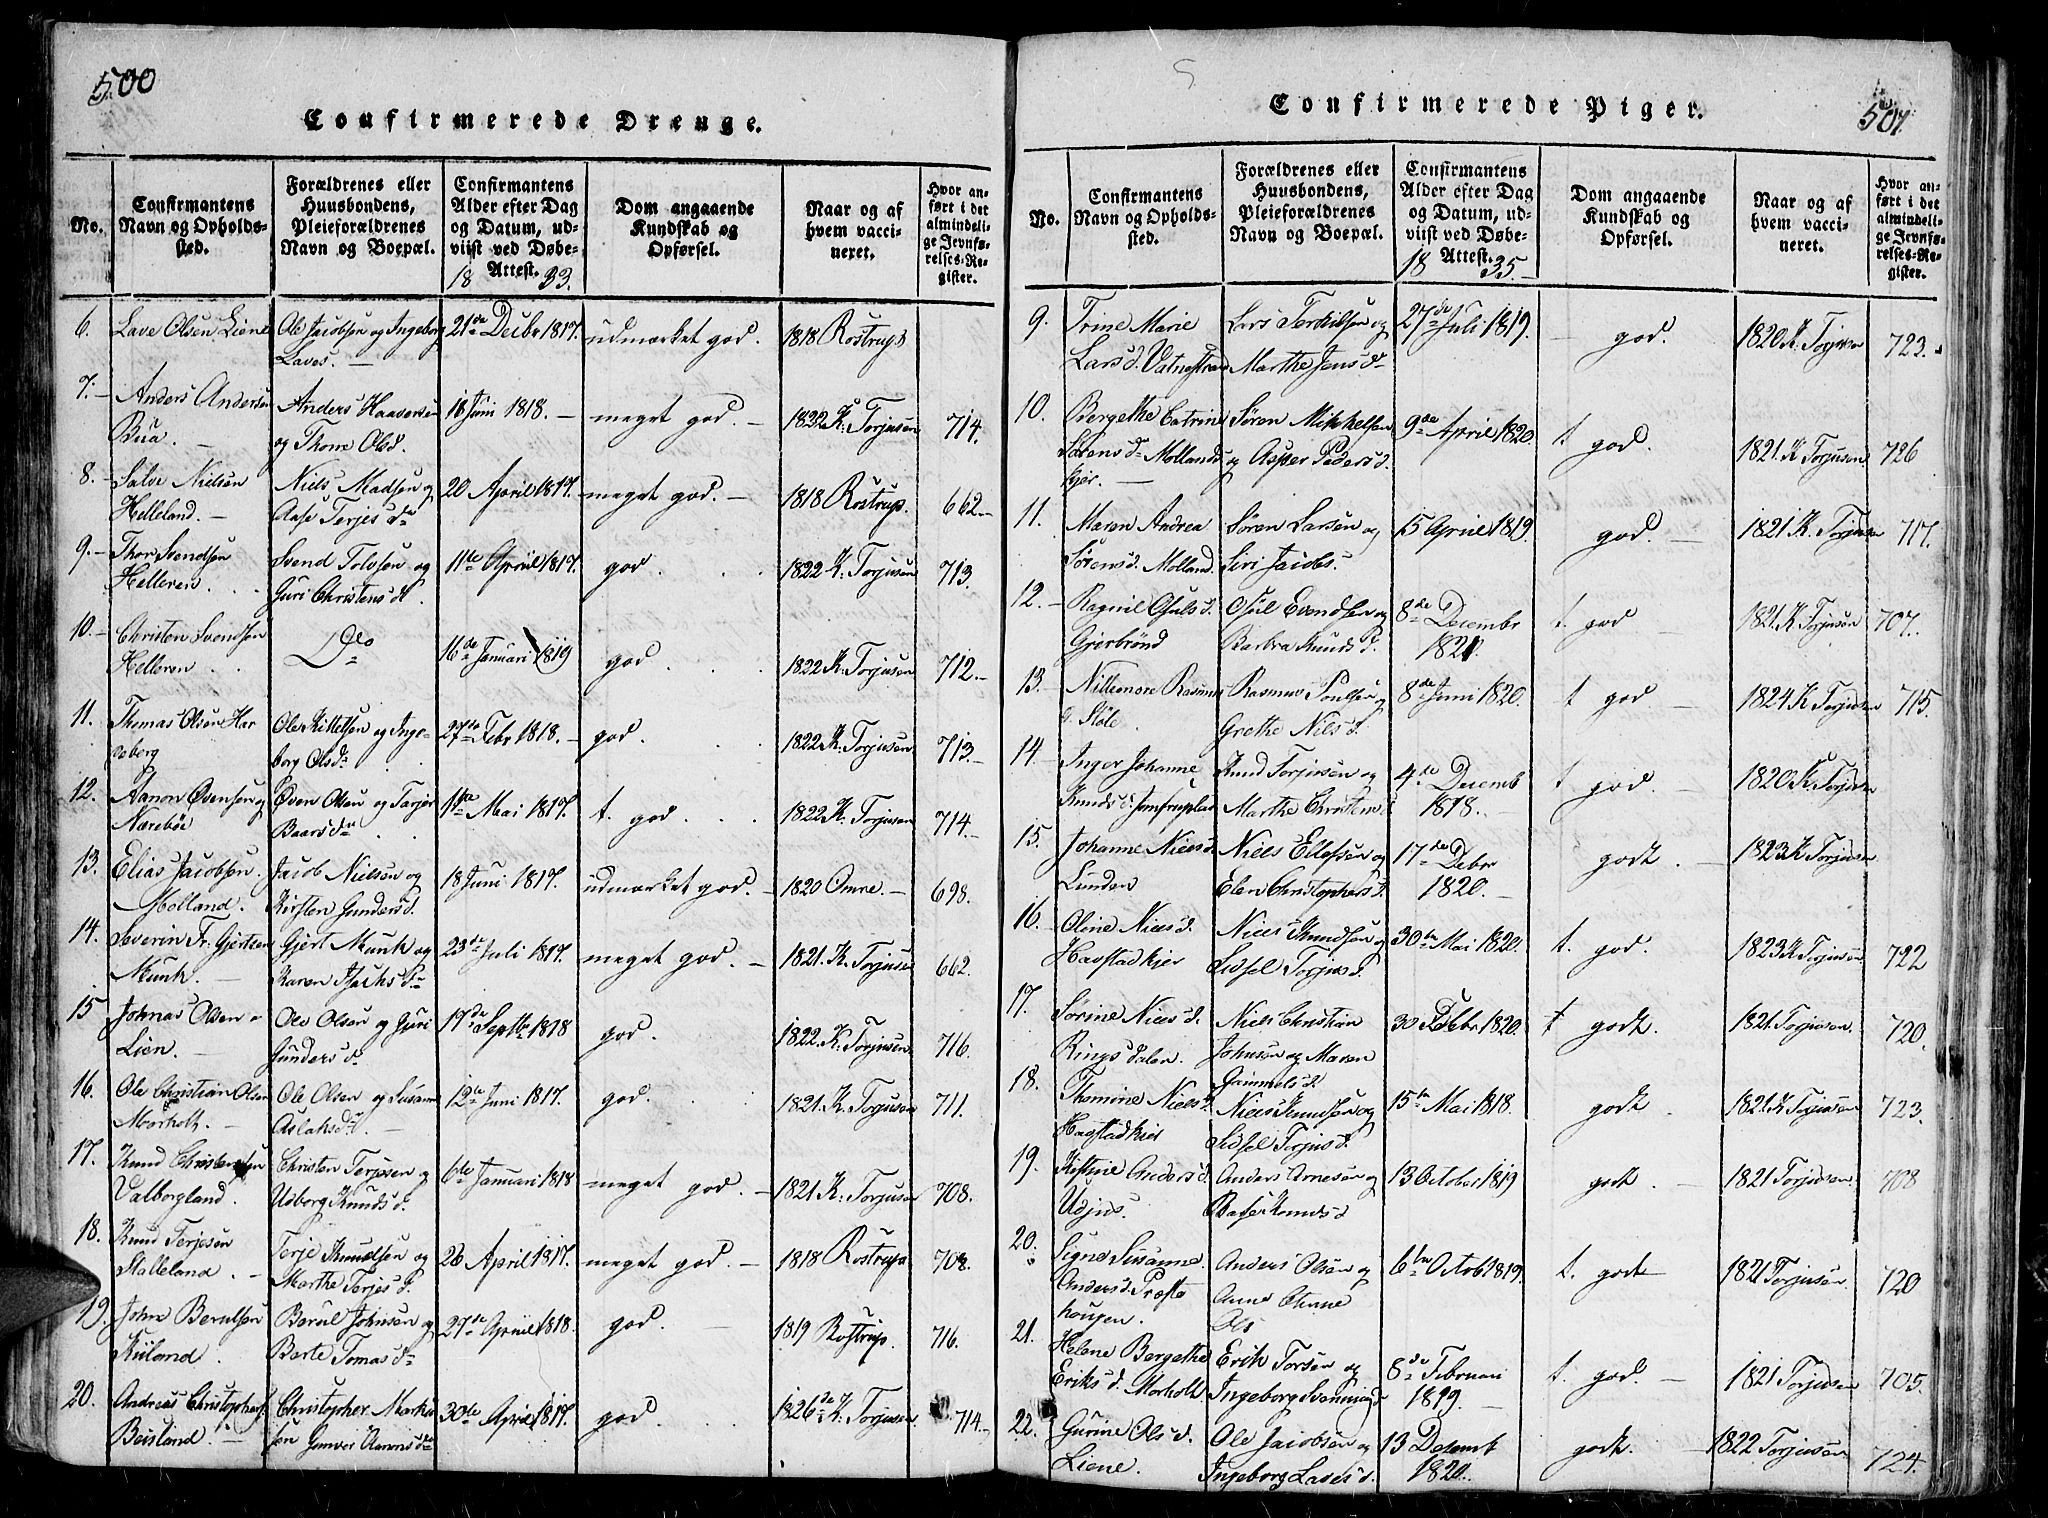 500
Confirmerede Drenge.
No.
Confirmantens Navn og Opholds-sted.
Forældrenes eller Huusbondens, Pleieforældrenes Navn og Boepæl.
Confirmantens Alder efter Dag og Datum, ud-viist ved Døbe-Attest.
18 33.
Dom angaaende Kundskab og Opførsel.
Naar og af hvem vacci-neret.
Hvor an-ført i det almindeli-ge Jevnfø-relses-Re-gister.
6. Lave Olsen Liene Ole Jacobsen og Ingeborg 21de Decbr 1817. udmærket god. 1818 Rostrup
Laves. —
7. — Anders Andersen Anders Haaversen 18 Juni 1818. — meget god. — 1822 K: Torjusen 714.
Bua. — og Thone Olsd.
8. — Salve Nielsen Niels Madsen og 20 April 1817. meget god. — 1818 Rostrup. 662. —
Helleland. — Aase Terjes d.
9. — Thor Svendsen Svend Tolvsen og 11te April 1817. god. 1822 K: Torjusen 713.
Helleren. Juri Christens d.
10. — Christen Svendsen Do 16de Januari 1819 god. 1822 K: Torjusen 712. —
Helleren
11. Thomas Olsen Har Ole Kittelsen og Inge- 27de Febr 1818. — god. 1822 K: Torjusen 713. —
peberg borg Olsd.
12. Aanon Øvensen Øven Olsen og Tarjer 11te Mai 1817. t. god. 1822 K: Torjusen 714. —
Nærebøe Baarsd.
13. Elias Jacobsen. Jacob Nielsen og 18 Juni 1817. udmærket god. — 1820 Omre. — 698.
Molland. Kirsten Gunders d.
14. Severin Fr. Gjertsen Gjert Munk og 23de Juli 1817. meget god. — 1821. K. Torjusen 662.
Munk. — Karen Isachs d.
15 Johnas Olsen Ole Olsen og Guri 17de Septbr 1818 god. 1822. K: Torjusen 716.
Lien. — Gunders d.
16. Ole Christian Olsen Ole Olsen og Susanne 12te Juni 1817. god. 1821. K: Torjusen 711.
Morholt. — Aslaksd.
17. Knud Christensen Christen Terjesen og 6te Januari 1818 meget god. — 1821 K: Torjusen 708.
Valborgland. Udborg Knuds d.
18. Knud Terjesen Terje Knudsen og 26 April 1817. meget god. — 1818 Rostrup 708.
Stalleland. — Marthe Terjes d.
19. John Berulsen Berul Johnsen og 27de April 1818. god. — 1819 Rostrup. 716.
Kiland. Berte Tomas d.
20. Andreas Christophers. Christopher Mark 30de April 1817. god. 1826 K: Torjusen. 714. —
Beisland. — sen Gunver Aarons d.
501.
Confirmerede Piger.
No.
Confirmantens Navn og Opholds-sted.
Forældrenes eller Huusbondens, Pleieforældrenes Navn og Boepæl.
Confirmantens Alder efter Dag og Datum, ud-viist ved Døbe-Attest.
18 35.
Dom angaaende Kundskab og Opførsel.
Naar og af hvem vacci-neret.
Hvor an-ført i det almindeli-ge Jevnfø-relses-Re-gister.
9. Trine Marie Lars Terkelsen og 27de Juli 1819. — god. 1820 K. Torjusen 723.
Lars d. Vatnestrand Marthe Jens d.
10. Bergethe Catrine Søren Mikkelsen 9de April 1820. t god. 1821. K Torjusen 726
Sørens d. Mollands og Asper Peders d.
kjer. —
11. Maren Andrea Søren Larsen og 15 April 1819. god. — 1821 K. Torjusen 717.
Sørens d. Molland. Siri Jacobs.
12. — Ragnil Osuls d. Osul Evendsen og 8de Decembr t. god — 1821. K Torjusen 707.
Gjerbrønd Barbra Knuds d. 1821.
13. Nilleonore Rasmus Rasmus Poulsen og 8de Juni 1820. t god — 1824 K Torjusen 715.
d. Støle. Grethe Niels d.
14. — Inger Johanne Knud Torjusen og 4de Decemb t god. — 1820. K. Torjusen
Knuds d. Jomfrueplad Marthe Christens d 1818.
15. Johanne Niels d. Niels Ellefsen og 17de Debr godt. — 1823 K Torjusen
Linden Elen Christophers d. 1820. —
16. Oline Niels d. Niels Knudsen og 30te Mai 1820. t. god. — 1823 K Torjusen 722
Havstadkjer Sidsel Torjus d.
17. Sørine Niels d. Niels Christian 30 Febr 1820. t godt. 1821. Torjusen. 720.
Rings dalen. Johnsen og Maren
Gammels d.
18. Thomine Niels d. Niels Knudsen og 15te Mai 1818. godt. 1821 K Torjusen 723.
Havstadkjer Sidsel Torjus d.
19. Kistine Anders d. Anders Arnesen og 13 October 1819 godt. — 1821 Torjusen. 708
Udjus. Knuds d
20. Signe Susanne Anders Olsen og 6te Octob 1819. t. godt 1821 Torjusen 720
Anders d. Præste Anne
hougen. Ols
21. Helene Bergethe Erik Torsen og 8de Februari t. god. — 1821 Torjusen 705.
Eriks d. Morholt. Ingeborg Svennings d 1819. —
22. Gurine Ols d. Ole Jacobsen og 13 Decemb godt. — 1822 Torjusen 724.
Liene. Ingeborg Laves d. 1820.